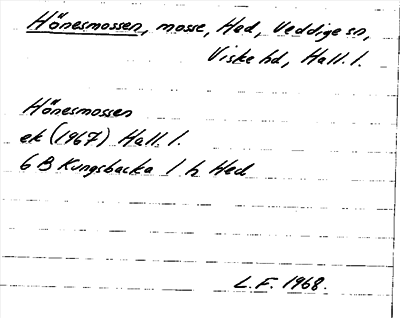 Hönesmossen, mosse, Hed, Veddige sn,
Viske hd, Hall. l.
Hönesmossen
ek (1967) Hall. l.
6 B Kungsbacka 1 h Hed
L.F. 1968.